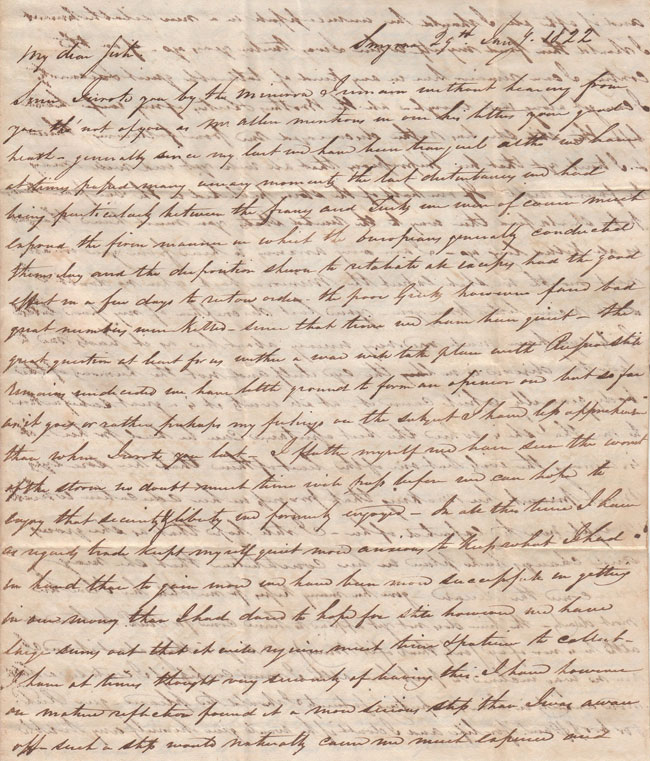 Smyrna 29th Jany. 1822
My dear
Since I wrote you by the Minerva I remain without hearing from
you tho' not of you as Mr Allen mentions in one his letters your good
health - generally since my last we have been tranquil altho we have
at times passed many uneasy moments the last disturbance we had
being particularly between the franks and Turks we were of course much
exposed the firm manner in what the Europeans generally conducted
themselves and the disposition shewn to retaliate all excesses had the good
effect in a few days to restore order - the poor Greeks however fared bad
great numbers were killed - since that time we have been quiet - the
great question at least for us wether a war will take place with Russia still
remains undecided we have little ground to form an opinion on but so far
as it goes or rather perhaps my feelings on the subject I have less apprehension
than when I wrote you last - I flatter myself we have seen the worst
of the storm no doubt much time will pass before we can hope to
enjoy that security & liberty we formerly enjoyed - In all this time I have
as regards trade kept myself quiet more anxious to keep what I had
in hand than to gain more we have been more successful in getting
in our money than I had dared to hope for still however we have
large sums out that it will require much time & patience to collect -
I have at times thought very seriously of leaving this. I have however
on mature reflection found it a more serious step than I was aware
off - such a step would naturally cause me much expence and